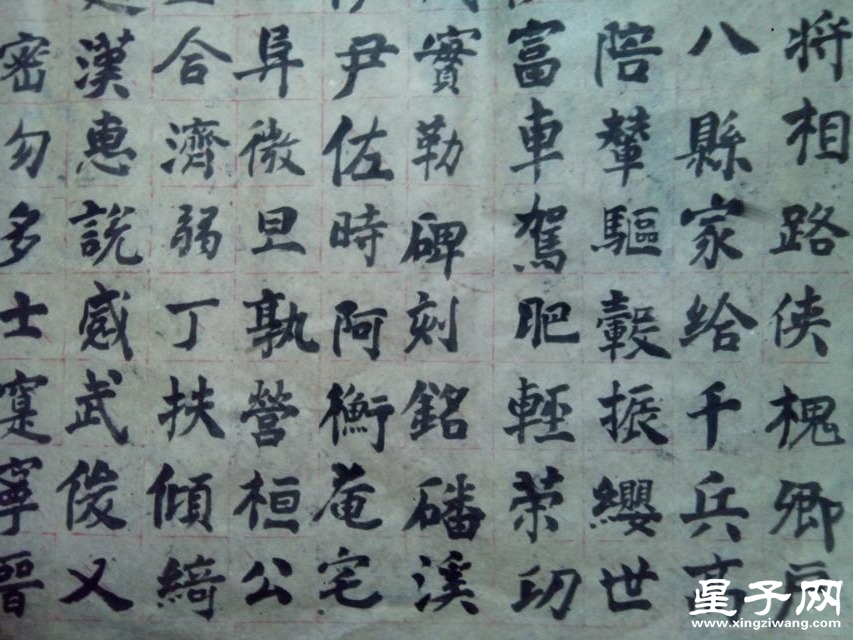 将相路侠槐卿户
八縣家給千兵高
陪輦驅轂振纓世
富車駕肥輕策功
實勒碑刻銘磻溪
尹佐時阿衡菴宅
阜微旦孰營桓公
合濟弱丁扶傾綺
漢惠說感武俊乂
密勿多士寔寧晉
星子网
www.xingziwang.com